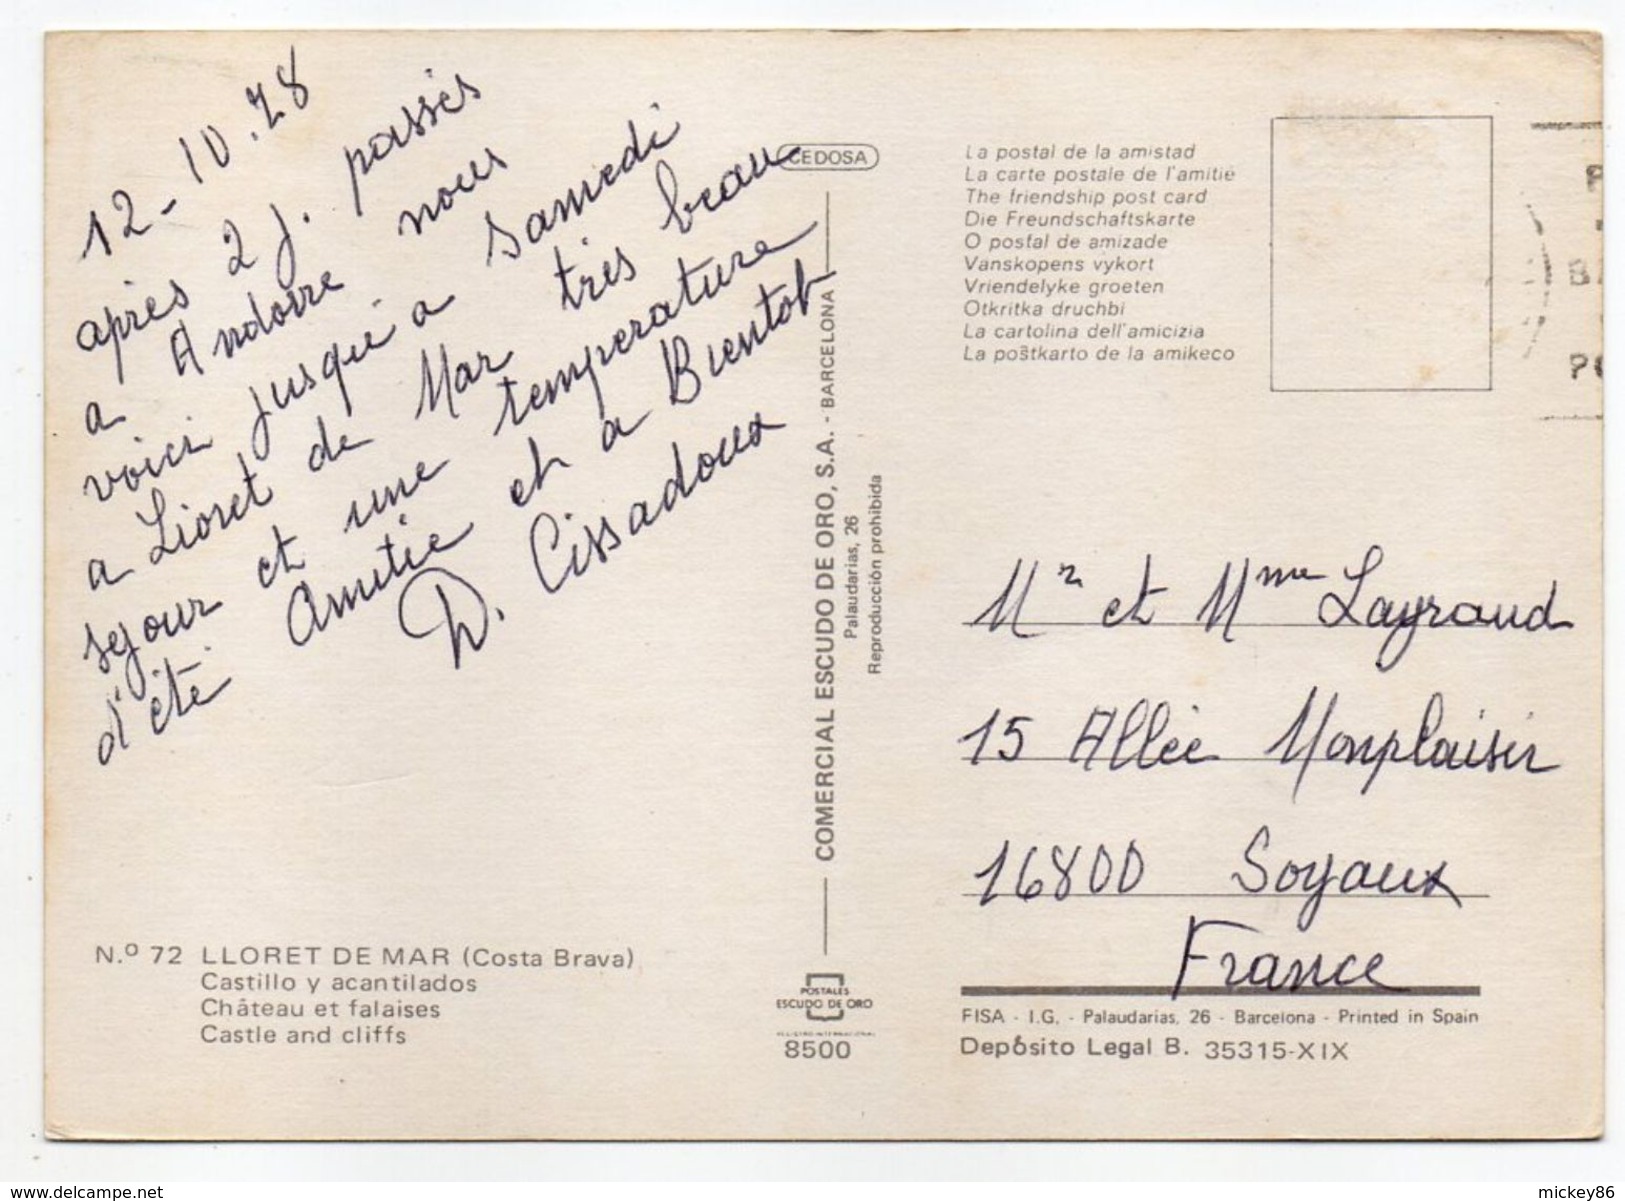 12-10.78
après 2 j. passés
a Andorre nous
voici jusqu'a samedi
a Lloret de Mar très beau
sejour et une temperature
d'été Amitie et a Bientot
D. Cissadoux
N.º 72 LLORET DE MAR (Costa Brava)
Castillo y acantilados
Château et falaises
Castle and cliffs
CEDOSA
COMERCIAL ESCUDO DE ORO, S.A. - BARCELONA
Palaudarias, 26
Reproducción prohibida
POSTALES
ESCUDO DE ORO
8500
La postal de la amistad
La carte postale de l'amitié
The friendship post card
Die Freundschaftskarte
O postal de amizade
Vanskopens vykort
Vriendelyke groeten
Otkritka druchbi
La cartolina dell'amicizia
La poŝtkarto de la amikeco
Mr et Mme Layraud
15 Allée Monplaisir
16800 Soyaux
France
FISA - I.G. - Palaudarias, 26 - Barcelona - Printed in Spain
Depósito Legal B. 35315-XIX
www.delcampe.net
mickey86